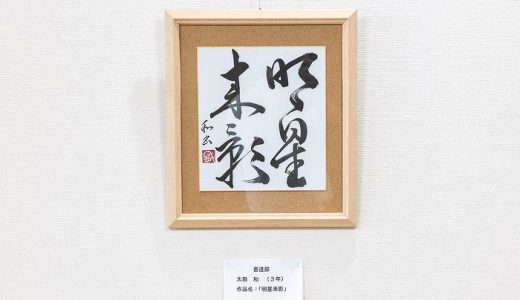 明星
来影
和玄
書道部
太田　和　（３年）
作品名：「明星来影」